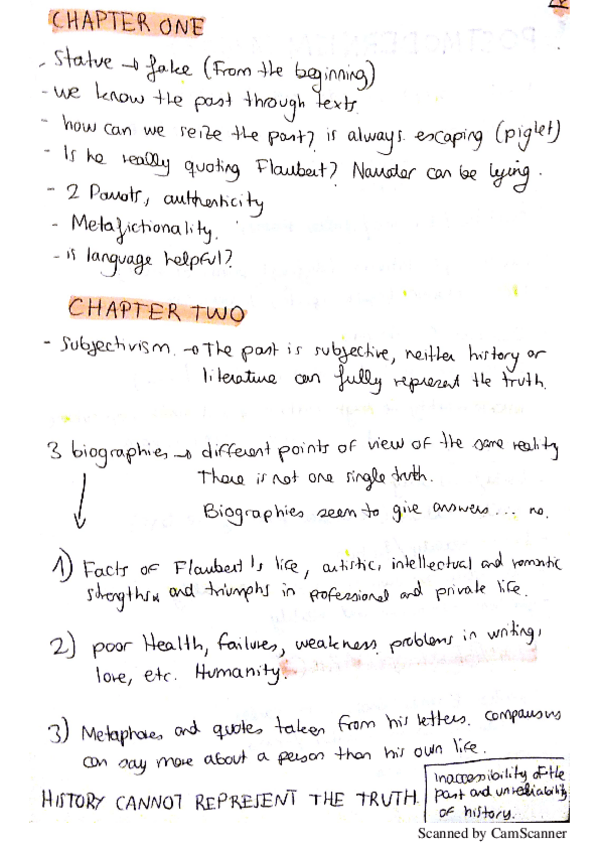 CHAPTER ONE
- Statue → fake (From the beginning)
- we know the past through texts
- how can we seize the past? is always escaping (piglet)
- Is he really quoting Flaubert? Narrator can be lying.
- 2 Parrots, authenticity
- Metafictionality.
- is language helpful?
CHAPTER TWO
- Subjectivism. → The past is subjective, neither history or
literature can fully represent the truth.
3 biographies → different points of view of the same reality
There is not one single truth.
Biographies seem to give answers... no.
1) Facts of Flaubert's life, artistic, intellectual and romantic
strengths and triumphs in professional and private life.
2) poor Health, failures, weakness, problems in writing,
love, etc. Humanity.
3) Metaphores and quotes taken from his letters. comparisons
can say more about a person than his own life.
HISTORY CANNOT REPRESENT THE TRUTH.
Inaccessibility of the
past and unreliability
of history.
Scanned by CamScanner